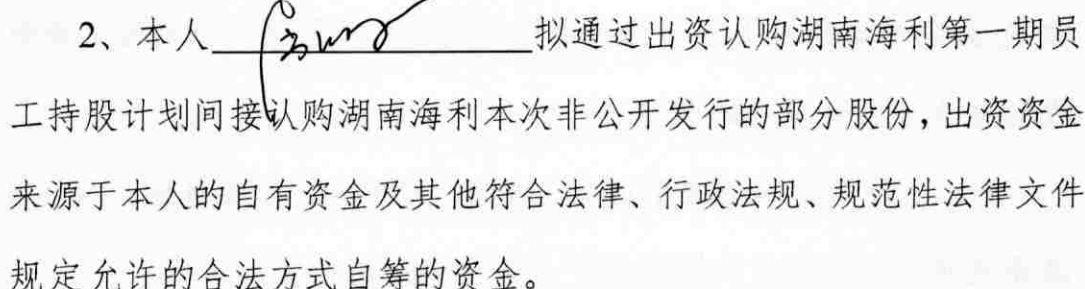 2、本人拟通过出资认购湖南海利第一期员
工持股计划间接认购湖南海利本次非公开发行的部分股份，出资资金
来源于本人的自有资金及其他符合法律、行政法规、规范性法律文件
规定允许的合法方式自筹的资金。